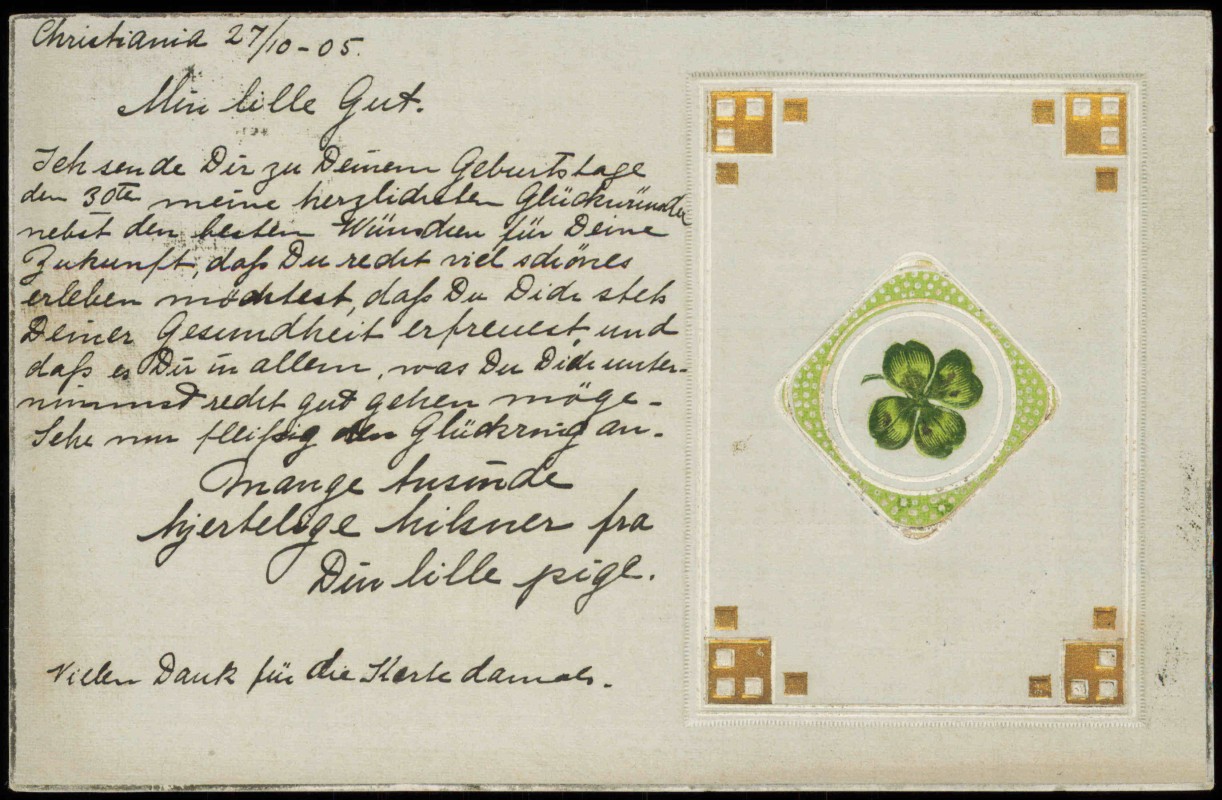 Christiania 27/10 - 05.
Min lille Gut.
Ich sende Dir zu Deinem Geburtstage
den 30te meine herzlichsten Glückwünsche
nebst den besten Wünschen für Deine
Zukunft, daß Du recht viel schönes
erleben möchtest, daß Du Dich stets
Deiner Gesundheit erfreuest und
daß es Dir in allem, was Du Dich unter-
nimmst recht gut gehen möge -
Sehe nun fleißig den Glückring an.
Mange tusinde
hjertelige hilsner fra
Din lille pige.
Vielen Dank für die Karte damals.